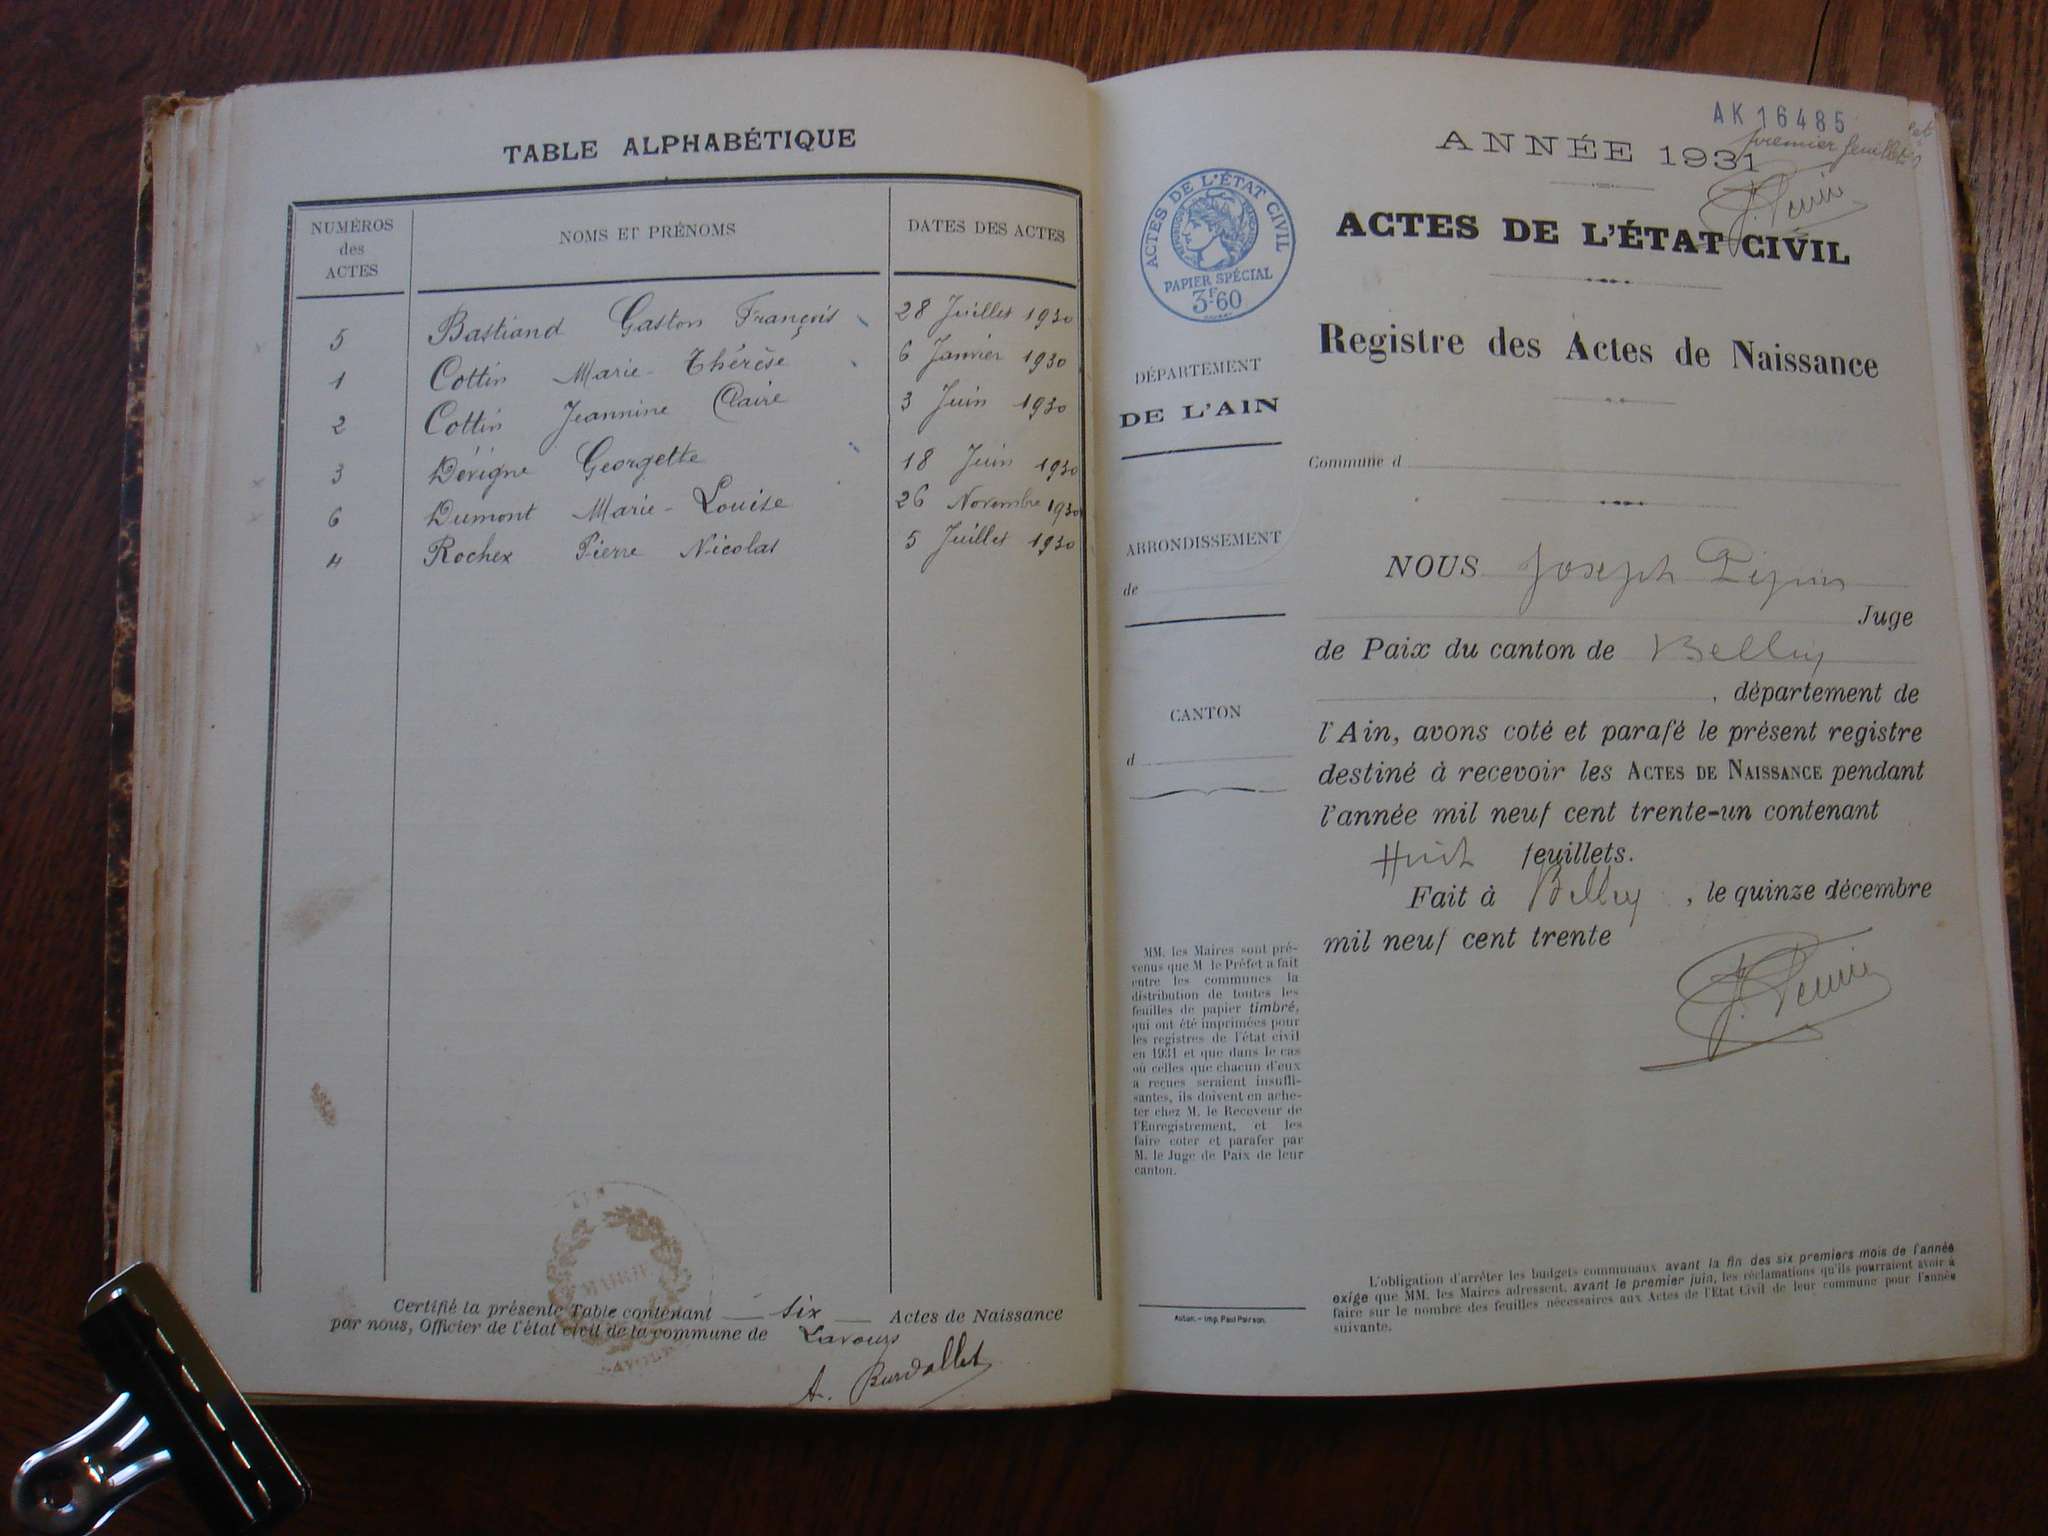 TABLE ALPHABÉTIQUE
NUMÉROS
des
ACTES
NOMS ET PRÉNOMS
DATES DES ACTES
5 Bastiand Gaston François 28 Juillet 1930
1 Cottin Marie-Thérèse 6 Janvier 1930
2 Cottin Jeannine Claire 3 Juin 1930
3 Dévigne Georgette 18 Juin 1930
6 Dumont Marie-Louise 26 Novembre 1930
4 Rochex Pierre Nicolas 5 Juillet 1930
MAIRIE
Certifié la présente Table contenant six Actes de Naissance
par nous, Officier de l'état civil de la commune de Lavours
A. Burdallet
AK 16485
premier feuillet
ANNÉE 1931
ACTES DE L'ÉTAT CIVIL
ACTES DE L'ÉTAT CIVIL
PAPIER SPÉCIAL
3F60
Registre des Actes de Naissance
DÉPARTEMENT
DE L'AIN
Commune d
ARRONDISSEMENT
de
CANTON
d
NOUS Joseph
Juge
de Paix du canton de Belley
, département de
l'Ain, avons coté et parafé le présent registre
destiné à recevoir les ACTES DE NAISSANCE pendant
l'année mil neuf cent trente-un contenant
Huit feuillets.
Fait à Belley, le quinze décembre
mil neuf cent trente
MM. les Maires sont pré-
venus que M le Préfet a fait
entre les communes la
distribution de toutes les
feuilles de papier timbré,
qui ont été imprimées pour
les registres de l'état civil
en 1931 et que dans le cas
où celles que chacun d'eux
a reçues seraient insuffi-
santes, ils doivent en ache-
ter chez M. le Receveur de
l'Enregistrement, et les
faire coter et parafer par
M. le Juge de Paix de leur
canton.
Autun. – Imp. Paul Poirson.
L'obligation d'arrêter les budgets communaux avant la fin des six premiers mois de l'année
exige que MM. les Maires adressent, avant le premier juin, les réclamations qu'ils pourraient avoir à
faire sur le nombre des feuilles nécessaires aux Actes de l'Etat Civil de leur commune pour l'année
suivante.